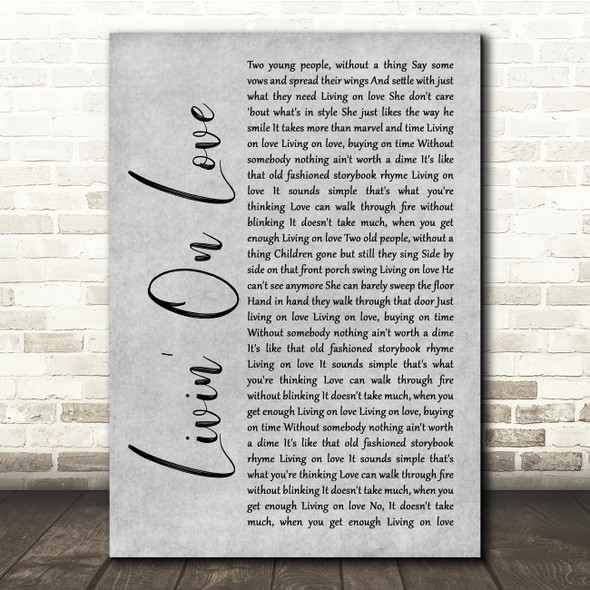 Livin' On Love
Two young people, without a thing Say some
vows and spread their wings And settle with just
what they need Living on love She don't care
'bout what's in style She just likes the way he
smile It takes more than marvel and time Living
on love Living on love, buying on time Without
somebody nothing ain't worth a dime It's like
that old fashioned storybook rhyme Living on
love It sounds simple that's what you're
thinking Love can walk through fire without
blinking It doesn't take much, when you get
enough Living on love Two old people, without a
thing Children gone but still they sing Side by
side on that front porch swing Living on love He
can't see anymore She can barely sweep the floor
Hand in hand they walk through that door Just
living on love Living on love, buying on time
Without somebody nothing ain't worth a dime
It's like that old fashioned storybook rhyme
Living on love It sounds simple that's what
you're thinking Love can walk through fire
without blinking It doesn't take much, when you
get enough Living on love Living on love, buying
on time Without somebody nothing ain't worth
a dime It's like that old fashioned storybook
rhyme Living on love It sounds simple that's
what you're thinking Love can walk through fire
without blinking It doesn't take much, when you
get enough Living on love No, It doesn't take
much, when you get enough Living on love